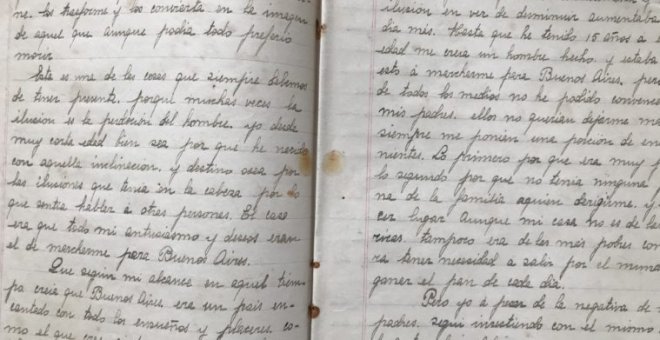 me, los trasforme y los convierta en la imagen
de aquel que aunque podia todo prefirio
morir
Esta es una de las cosas que siempre debemos
de tener presente. porque muichas veces la
ilusion es la perdicion del hombre. yo desde
muy corta edad bien sea por que he nacido
con aquella inclinacion. y destino osea por
las ilusiones que tenia en la cabeza por lo
que sentia hablar a otras personas. El caso
era que todo mi entusiasmo y deseos eran
el de marcherme para Buenos Aires.
Que segun mi alcance en aquel tiem-
po creia que Buenos Aires era un pais en-
cantado con todo los ensueños y placeres co-
mo el que
ilusion en ver de diminuir aumentaba
dia mas. Hasta que he tenido 15 años a
edad me creia un hombre hecho y estaba
esto á marcharme para Buenos Aires, per
de todos los medios no he podido convence
mis padres. ellos no querian dejarme ma
siempre me ponien una porcion de en
nientes. Lo primero por que era muy
lo segundo por que no tenia ninguna
na de la familia aquien dirigirme. y
cer lugar. Aunque mi casa no es de las
ricas. tamporo era de les más pobres con
ra tener necesidad a salir por el mun
ganer el pan de cada dia.
Pero yo á pesar de la negativa de
padres. segui insistiendo con el mismo